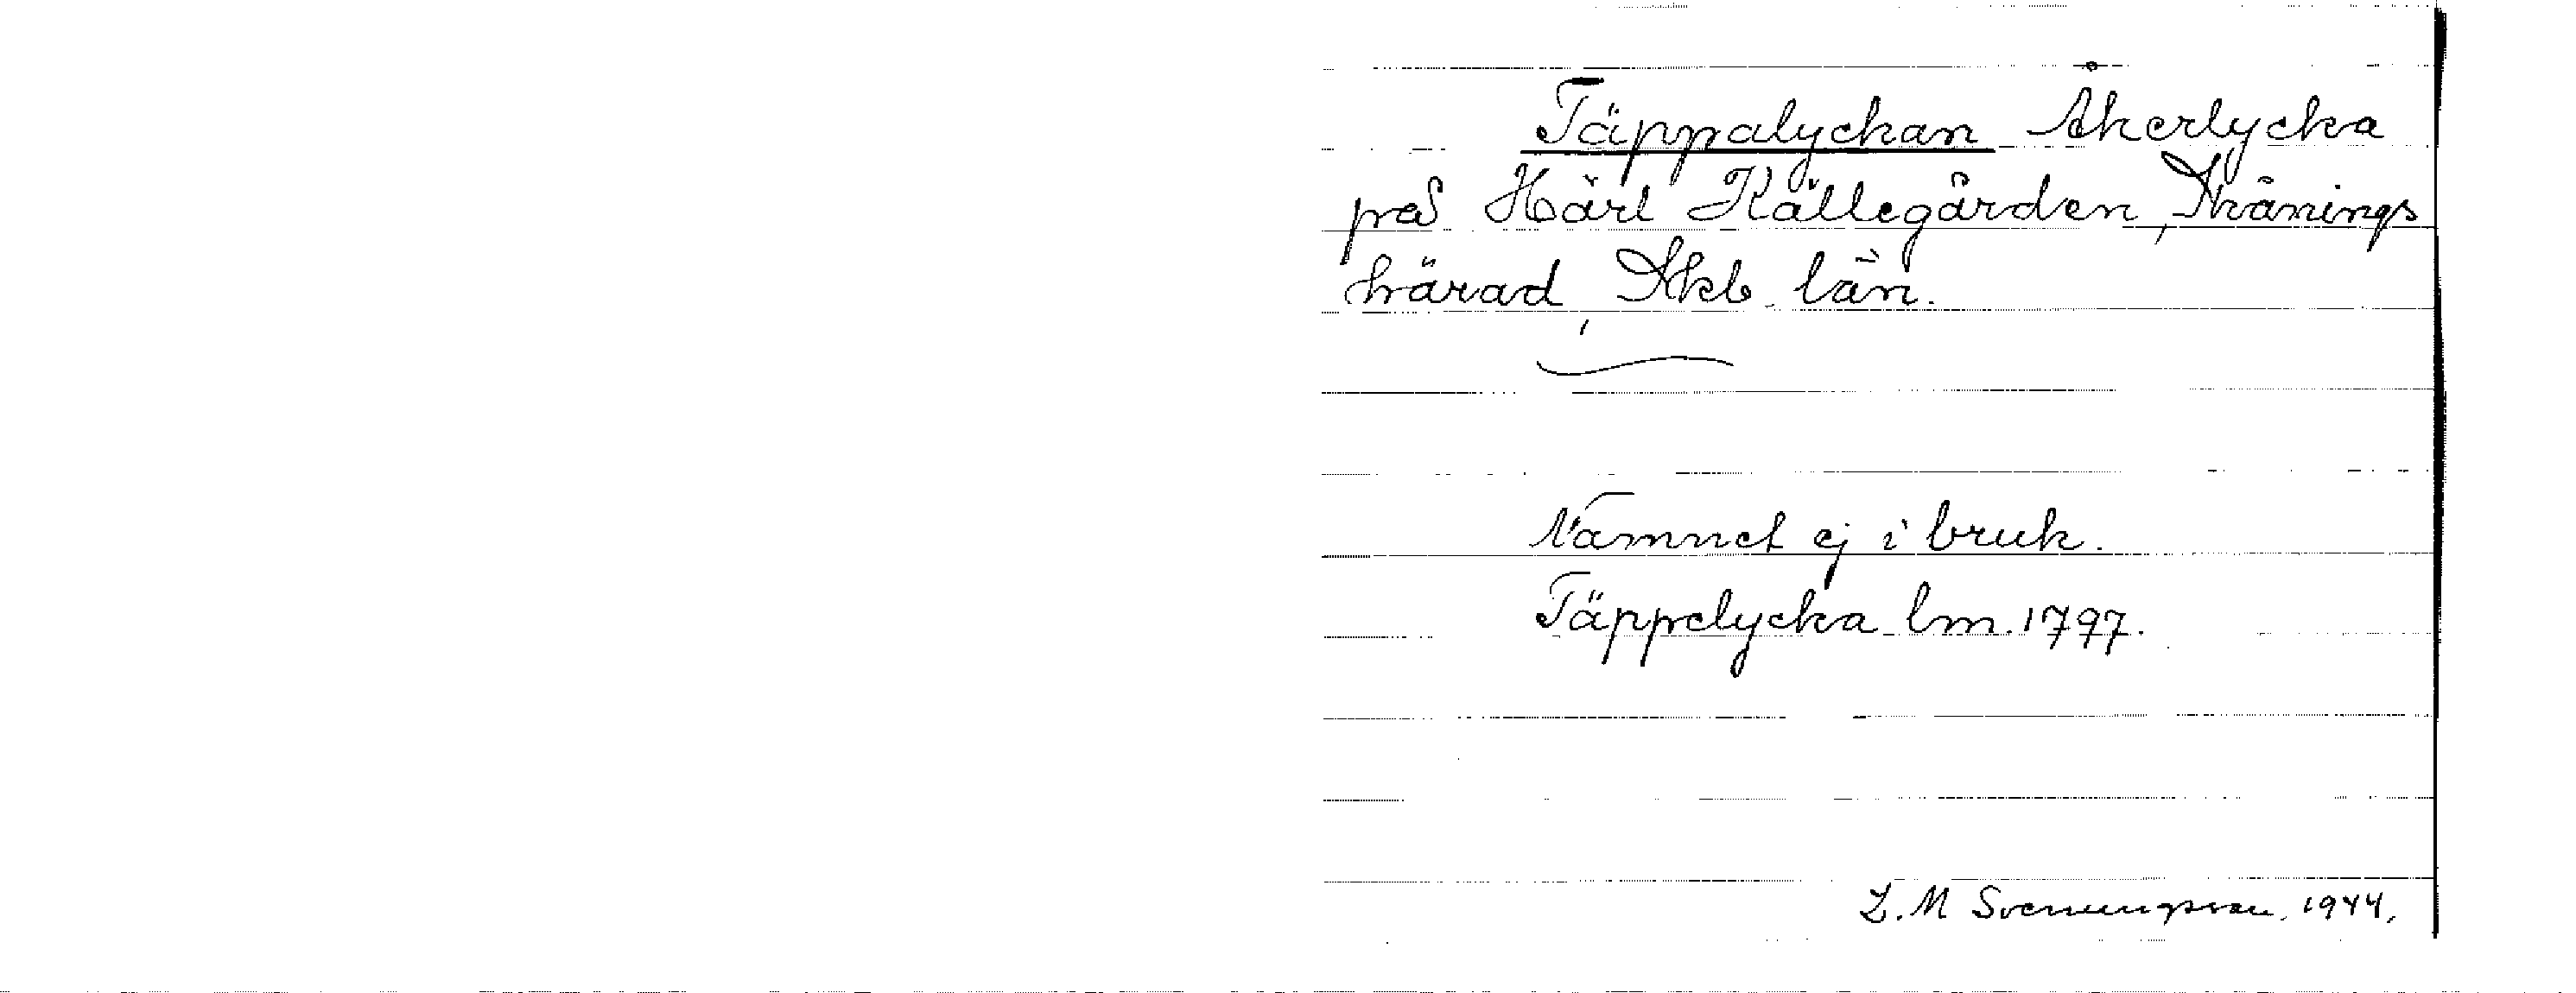 Täppalyckan Åkerlycka
på Härl Källegården, Skånings
härad, Skb. län.
Namnet ej i bruk.
Täppelycka lm. 1797.
L. M Svenungsson. 1944.